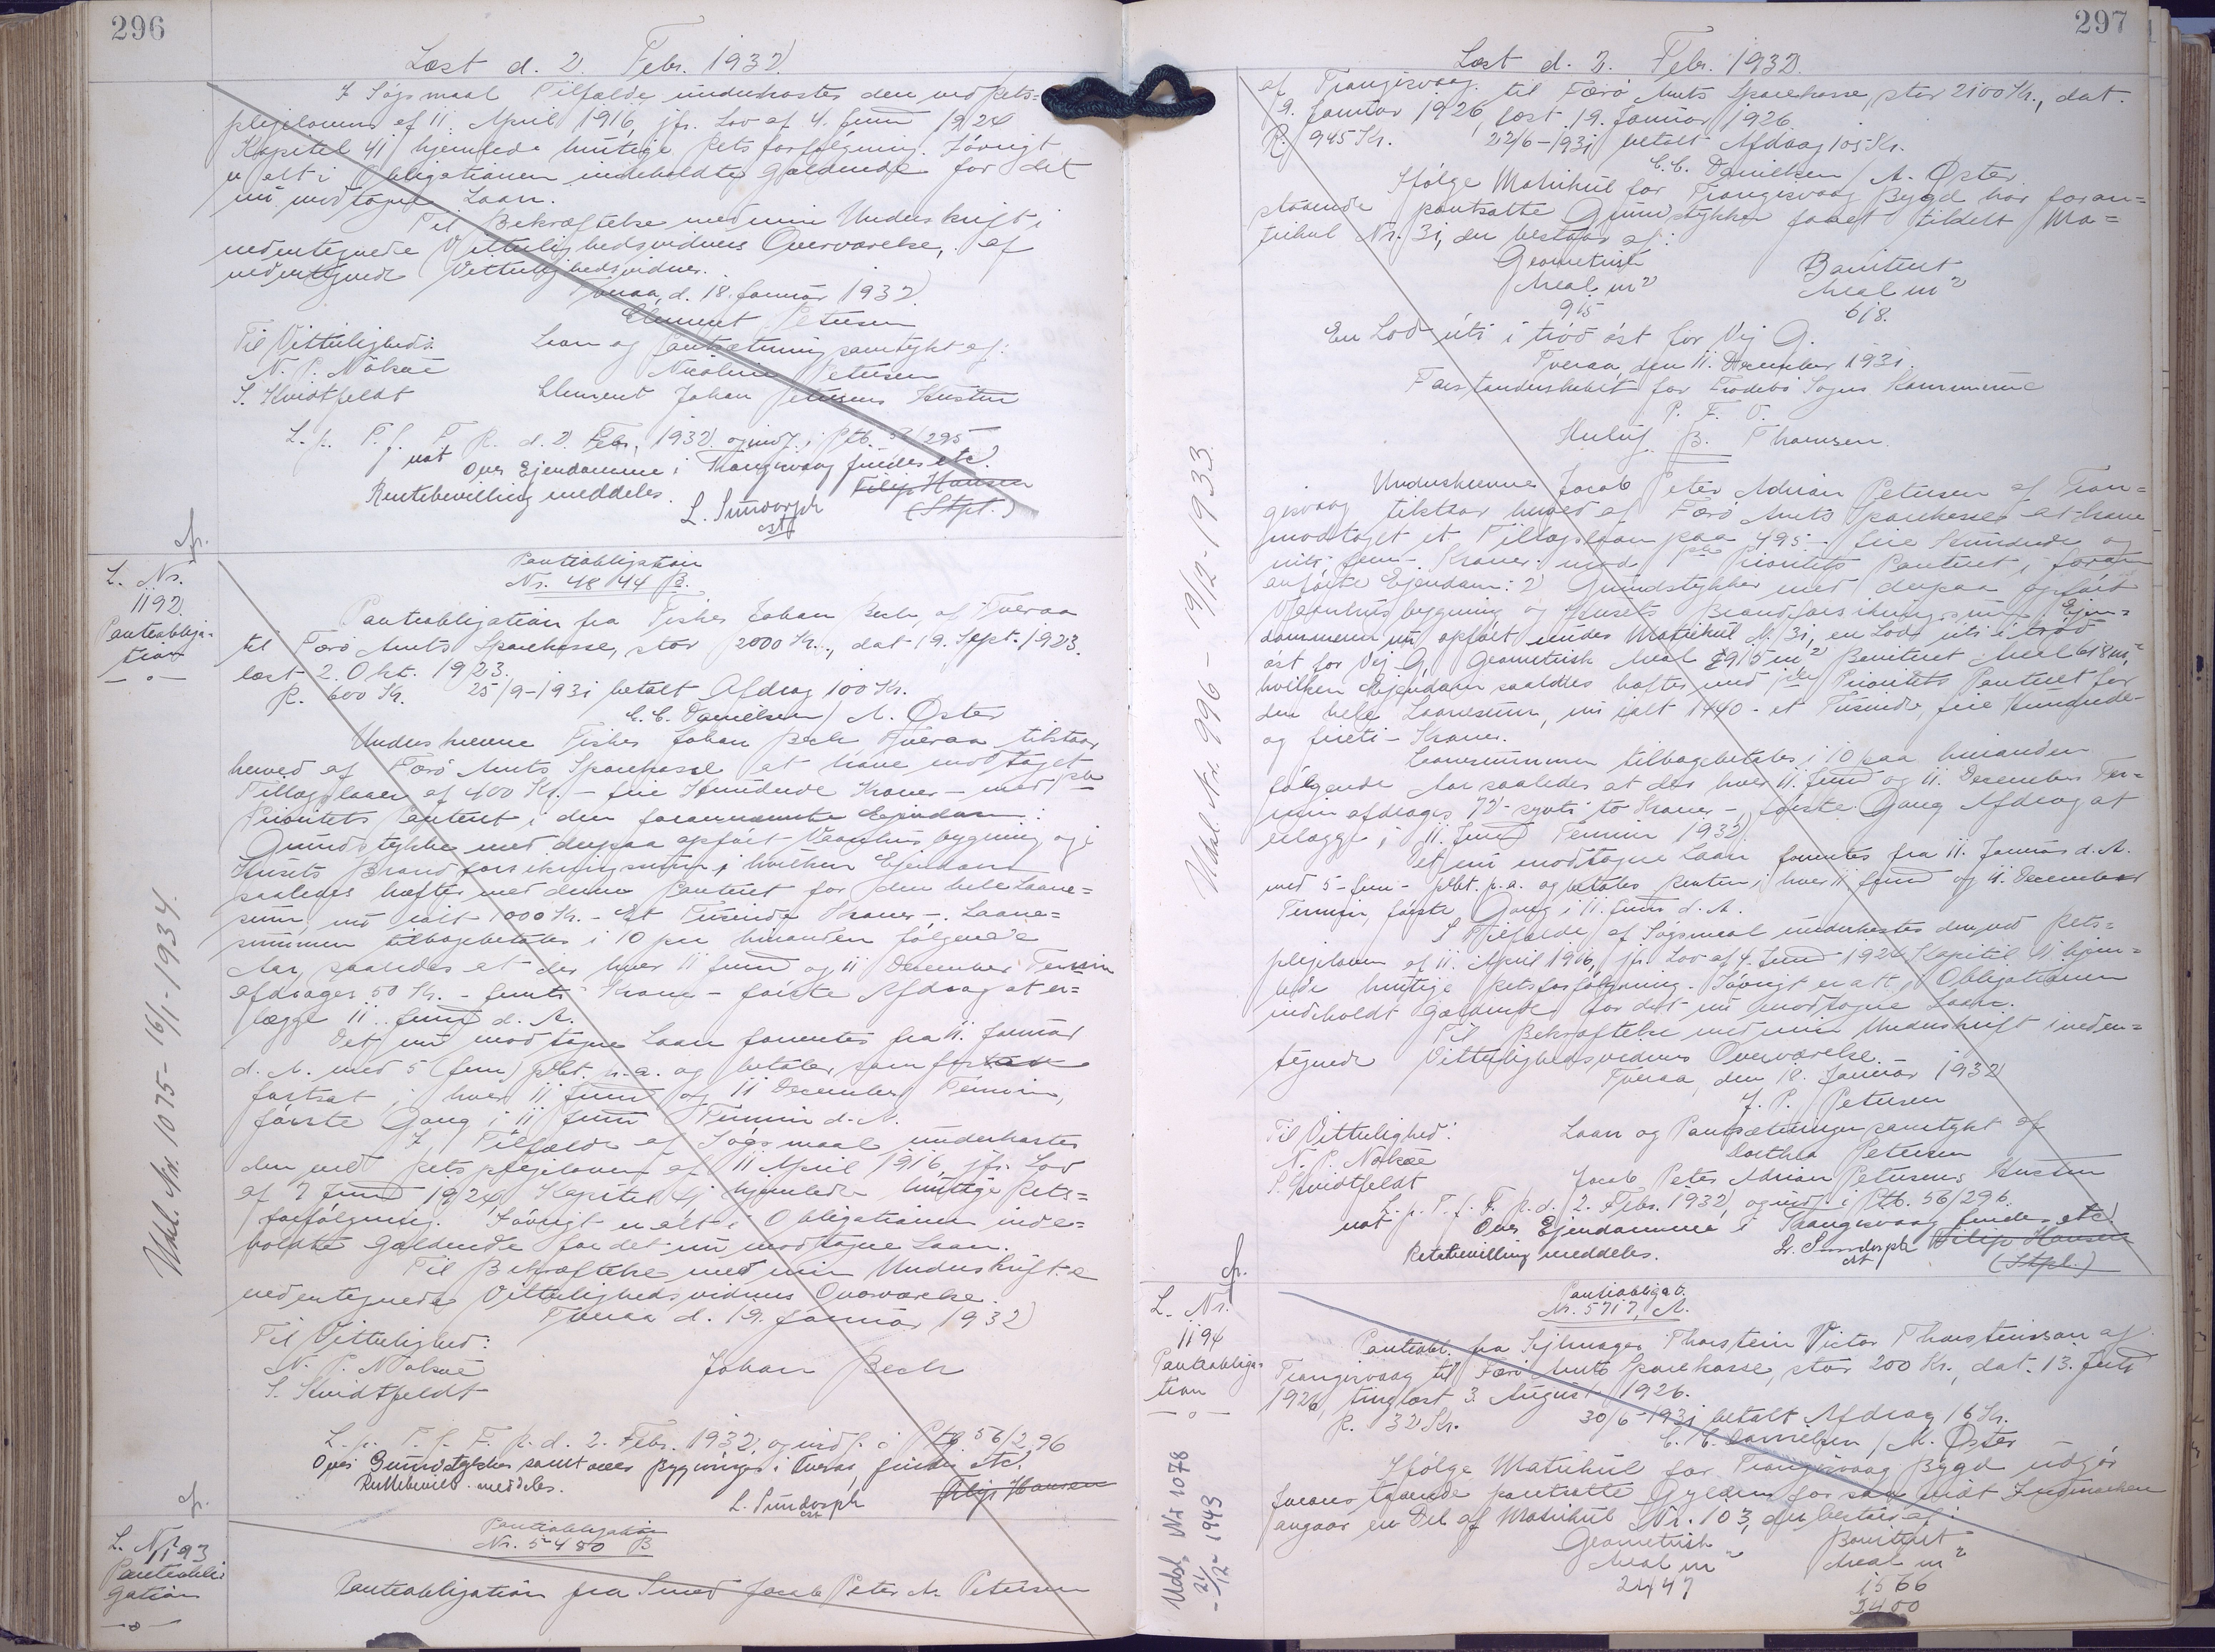 296
Læst d. 2. Febr. 1932.
I Søgsmaal Tilfælde underkastes den ved Rets=
plejeloven af 11. April 1916, jfr. Lov af 4. Juni 1924
Kapitel 41 hjemlede hurtige Retsforfølgning. Iøvrigt
er alt i Obligationen indeholdte gældende for det
nu modtagne Laan.
Til Bekræftelse med min Underskrift i
nedentegnede Vitterlighedsvidners Overværelse, af
nedentegnede Vitterlighedsvidner.
Tveraa, d. 18. Januar 1932.
Clement Petersen
Til Vitterlighed: Laan og Pantsætning samtykt af:
N. P. Nolsøe Nicoline Petersen
S. Hvidtfeldt Clement Johan Petersens Hustru
L. p. T. f. F. R. d. 2. Febr. 1932. og indf. i Ptb. 56/295
not Over Ejendomme i Trangisvaag findes etc.
Retsbevilling meddeles. L. Sundorph Filip Hansen
cst (Stpl.)
L. Nr.
1192.
Panteobliga-
tion
Panteobligation
Nr. 4844 B.
Panteobligation fra Fisker Johan Bech, af Tveraa
til Færø Amts Sparekasse, stor 2000 Kr., dat 19. Sept. 1923.
læst 2. Okt. 1923.
R. 600 Kr. 25/9-1931 betalt Afdrag 100 Kr.
C. C. Danielsen / A. Øster
Underskrevne Fisker Johan Bech Tveraa tilstaar
herved af Færø Amts Sparekasse at have modtaget
Tillægslaan af 400 Kr. - fire Hundrede Kroner - med 1ste
Prioritets Panteret i den forannævnte Ejendom:
Grundstykke med derpaa opført Vaanhusbygning og i
Husets Brandforsikringssum, i hvilken Ejendom
saaledes hæfter med denne Panteret for den hele Laane=
sum, nu ialt 1000 Kr. - Et Tusinde Kroner -. Laane=
summen tilbagebetales i 10 paa hinanden følgende
Aar, saaledes at der hver 11 Juni og 11 December Termin
afdrages 50 Kr. - femti Kroner - første Afdrag at er=
lægge 11. Juni d. A.
Det nu modtagne Laan forrentes fra 11. Januar
d. A. med 5 (fem) pCt. p. a. og betales som
fortsat i hver 11 Juni og 11 December Termin,
første Gang i 11 Juni Termin d. A.
I Tilfælde af Søgsmaal underkastes
den ved Retsplejeloven af 11 April 1916, jfr. Lov
af 7 Juni 1924, Kapitel 41 hjemlede hurtige Rets=
forfølgning. Iøvrigt er alt i Obligationen inde=
holdte gældende for det nu modtagne Laan.
Til Bekræftelse med min Underskrift i
nedentegnede Vitterlighedsvidners Overværelse.
Tveraa d. 19. Januar 1932
Til Vitterlighed:
N. P. Nolsøe Johan Bech
S. Hvidtfeldt
L. p. T. f. F. R. d. 2. Febr. 1932, og indf. i Ptb. 56/296
Over Grundstykker samt over Bygninger i Tveraa, findes etc.
Retsbevill. meddeles.
L. Sundorph Filip Hansen
cst
Udsl. Nr. 1075 - 16/1-1934.
L. Nr.
1193
Panteobli-
gation
Panteobligation
Nr. 5480 B
Panteobligation fra Smed Jacob Peter A. Petersen
297
Læst d. 2. Febr. 1932.
af Trangisvaag til Færø Amts Sparekasse, stor 2100 Kr., dat.
9. Januar 1926, læst 19. Januar 1926.
R. 945 Kr. 22/6-1931 betalt Afdrag 105 Kr.
C. C. Danielsen / A. Øster
Ifølge Matrikul for Trangisvaag Bygd har foran=
staaende pantsatte Grundstykker faaet tildelt Ma=
trikul Nr. 31, der bestaar af:
Geometrisk Boniteret
Areal m² Areal m²
915 618.
En Lod úti í trøð øst for Vej G.
Tveraa, den 11. December 1931.
Forstanderskabet for Froðebø Sogns Kommune
P. F. V.
B. Thomsen.
Underskrevne Jacob Peter Adrian Petersen af Tran=
gisvaag tilstaar herved af Færø Amts Sparekasse at have
modtaget et Tillægslaan paa 495 - fire Hundrede og
niti fem - Kroner mod 1ste Prioritets Panteret i foran
anførte Ejendom: 2 Grundstykker med derpaa opført
Vaanhusbygning og Husets Brandforsikringssum. Ejen=
dommen nu opført under Matrikul Nr. 31, en Lod úti í trøð
øst for Vej G, Geometrisk Areal 915 m², Boniteret Areal 618 m²,
hvilken Ejendom saaledes hæfter med 1ste Prioritets Panteret for
den hele Laanesum, nu ialt 1440 - et Tusinde, fire Hundrede
og firti - Kroner.
Laanesummen tilbagebetales i 10 paa hinanden
følgende Aar saaledes at der hver 11. Juni og 11. December Ter=
min afdrages 72 - syvti to Kroner -, første Gang Afdrag at
erlægge i 11. Juni Termin 1932.
Det nu modtagne Laan forrentes fra 11. Januar d. A.
med 5 - fem - pCt. p. a. og betales Renten i hver 11 Juni og 11. December
Termin, første Gang i 11. Juni d. A.
I Tilfælde af Søgsmaal underkastes den ved Rets=
plejeloven af 11. April 1916, jfr. Lov af 4. Juni 1924 Kapitel 41 hjem=
lede hurtige Retsforfølgning. Iøvrigt er alt i Obligationen
indeholdt gældende for det nu modtagne Laan.
Til Bekræftelse med min Underskrift i neden=
tegnede Vitterlighedsvidners Overværelse.
Tveraa, den 18. Januar 1932
J. P. Petersen
Til Vitterlighed: Laan og Pantsætningen samtykt af
N. P. Nolsøe Dorthea Petersen
S. Hvidtfeldt Jacob Peter Adrian Petersens Hustru
L. p. T. f. F. R. d. 2. Febr. 1932, og indf. i Ptb. 56/296.
not Over Ejendomme i Trangisvaag findes etc.
Retsbevilling meddeles. L. Sundorph Filip Hansen
cst (Stpl.)
Udsl. Nr. 996 - 19/12-1933.
L. Nr.
1194
Panteobliga-
tion
Panteobligat.
Nr. 5717, A.
Panteobl. fra Sejlmager Thorstein Victor Thorsteinsson af
Trangisvaag til Færø Amts Sparekasse, stor 200 Kr., dat. 13. Juli
1926, tinglæst 3. August 1926.
R. 32 Kr. 30/6-1931 betalt Afdrag 16 Kr.
C. C. Danielsen / A. Øster
Ifølge Matrikul for Trangisvaag Bygd udgør
foranstaaende pantsatte Gyldens for saa vidt Indmarken
angaar en Del af Matrikul Nr. 103, der bestaar af:
Geometrisk Boniteret
Areal m² Areal m²
2447 1566
2400
Udsl. Nr 1078
- 21/12 1943